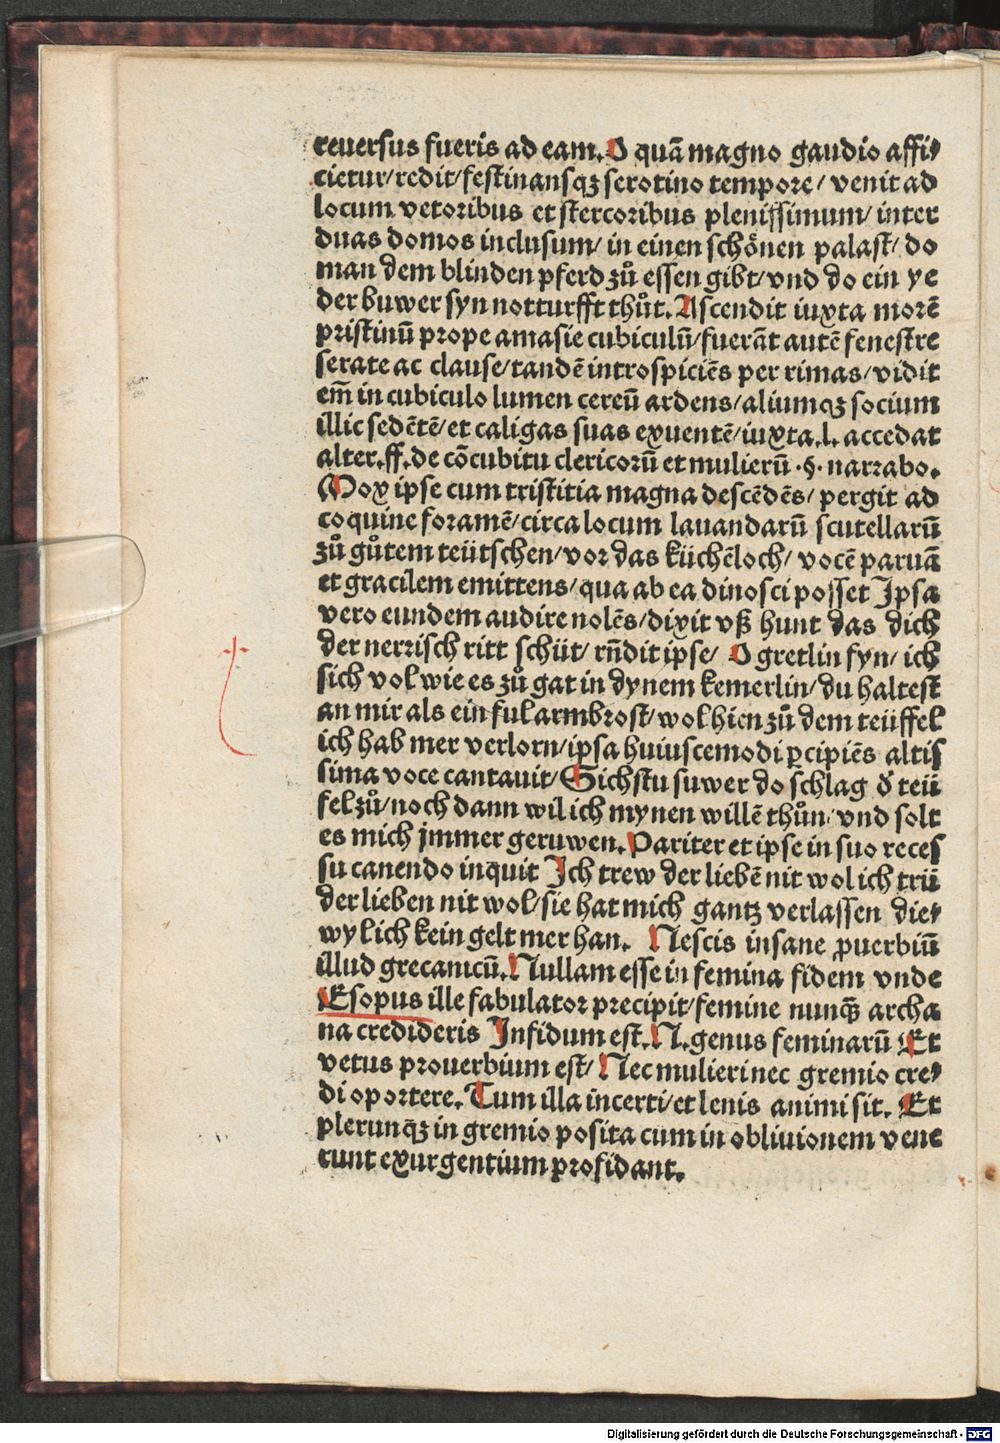 reuersus fueris ad eam. O quā magno gaudio affi⸗
cietur/ redit/ festinansqꝫ serotino tempore/ venit ad
locum vetoribus et stercoribus plenissimum/ inter
duas domos inclusum/ in einen schönen palast/ do
man dem blinden pferd zů essen gibt/ vnd do ein ye
der buwer syn notturfft thůt. Ascendit iuxta morē
pristinū prope amasie cubiculū/ fuerāt autē fenestre
serate ac clause/ tandē introspiciēs per rimas/ vidit
em̄ in cubiculo lumen cereū ardens/ aliumqꝫ socium
illic sedētē/ et caligas suas exuentē/ iuxta .l. accedat
alter. ff. de cōcubitu clericorū et mulierū .§. narrabo.
Mox ipse cum tristitia magna descēdēs/ pergit ad
coquine foramē/ circa locum lauandarū scutellarū
zů gůtem teütschen/ vor das küchēloch/ vocē paruā
et gracilem emittens/ qua ab ea dinosci posset Ipsa
vero eundem audire nolēs/ dixit vß hunt das dich
der nerrisch ritt schüt/ rn̄dit ipse/ O gretlin fyn/ ich
sich vol wie es zů gat in dynem kemerlin/ du haltest
an mir als ein ful armbrost/ wol hien zů dem teüffel
ich hab mer verlorn/ ipsa huiuscemodi ꝑcipiēs altis
sima voce cantauit/ Sichstu suwer do schlag d̓ teü
fel zů/ noch dann wil ich mynen willē thůn/ vnd solt
es mich jmmer geruwen. Pariter et ipse in suo reces
su canendo inquit Ich trew der liebē nit wol ich trü
der lieben nit wol/ sie hat mich gantz verlassen die⸗
wyl ich kein gelt mer han. Nescis insane ꝓuerbiū
illud grecanicū. Nullam esse in femina fidem vnde
Esopus ille fabulator precipit/ femine nunqꝫ archa
na credideris Infidum est. N. genus feminarū Et
vetus prouerbium est/ Nec mulieri nec gremio cre⸗
di oportere. Tum illa incerti/ et lenis animi sit. Et
plerunqꝫ in gremio posita cum in obliuionem vene
runt exurgentium profidant.
Digitalisierung gefördert durch die Deutsche Forschungsgemeinschaft - DFG